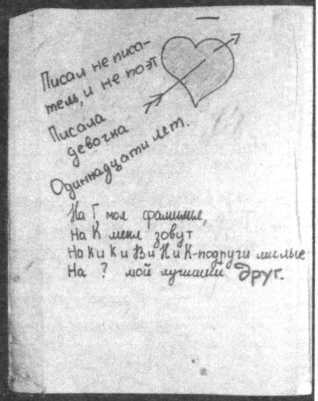 Писал не писа-
тель, и не поэт
Писала
девочка
Одиннадцати лет.
На Г моя фамилия,
на К меня зовут
На К и К и В и Н и К-подруги милые
На ? мой лучший друг.